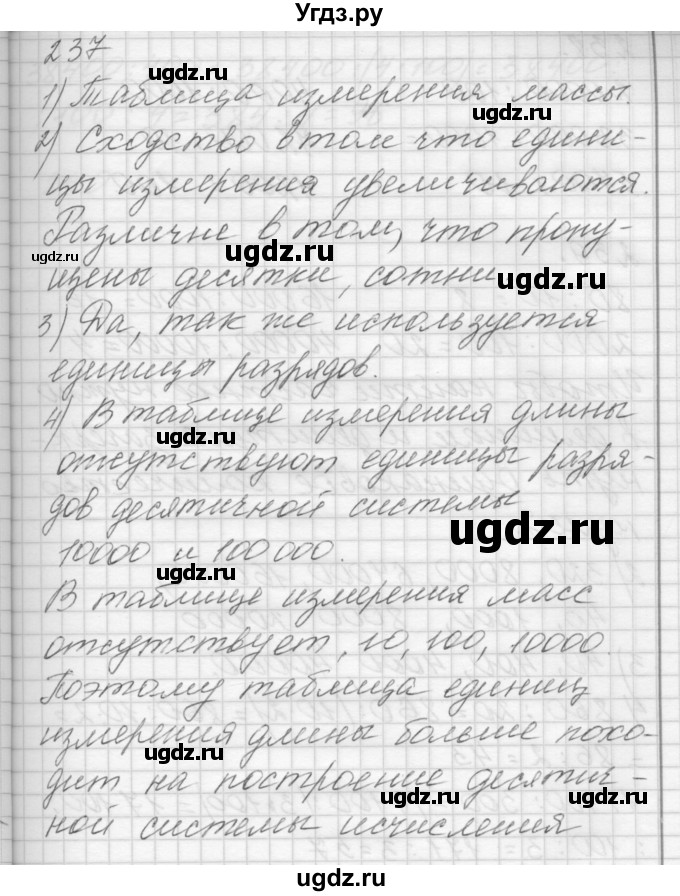 Угдз.ру
237
ugdz.ru
1) Таблица измерения массы.
ugdz.ru
ugdz.ru
2) Сходство в том что едини-
цы измерения увеличиваются.
Различие в том, что пропу-
ugdz.ru
ugdz.ru
щены десятки, сотни
ugdz.ru
3) Да, так же используется
единицы разрядов.
ugdz.ru
ugdz.ru
4) В таблице измерения длины
ugdz.ru
отсутствуют единицы разря-
дов десятичной системы
ugdz.ru
10000 и 100 000.
ugdz.ru
В таблице измерения масс
отсутствует, 10, 100, 10000.
ugdz.ru
Поэтому таблица единиц
измерения длины больше похо-
ugdz.ru
дит на построение десятич-
ugdz.ru
ugdz.ru
ной системы исчисления